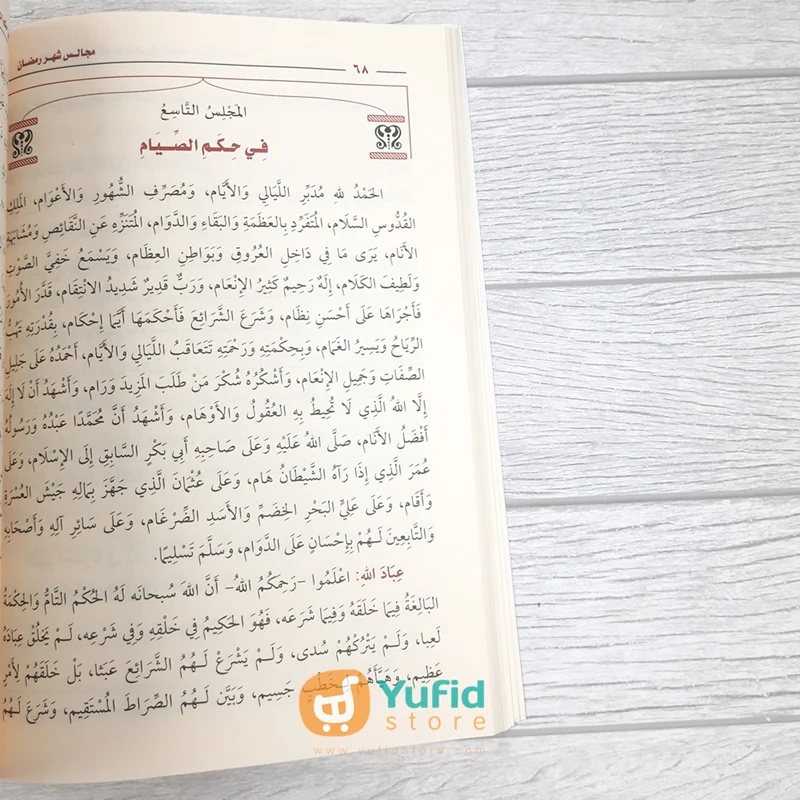 مجالس شهر رمضان
٦٨
المَجْلِسُ التَّاسِعُ
فِي حِكَمِ الصِّيَامِ
الحَمْدُ للهِ مُدَبِّرِ اللَّيَالِي وَالأَيَّام، وَمُصَرِّفِ الشُّهُورِ وَالأَعْوَام، المَلِكِ
القُدُّوسِ السَّلَام، المُتَفَرِّدِ بِالعَظَمَةِ وَالبَقَاءِ وَالدَّوَام، المُتَنَزِّهِ عَنِ النَّقَائِصِ وَمُشَابَهَةِ
الأَنَام، يَرَى مَا فِي دَاخِلِ العُرُوقِ وَبَوَاطِنِ العِظَام، وَيَسْمَعُ خَفِيَّ الصَّوْتِ
وَلَطِيفَ الكَلَام، إِلَهٌ رَحِيمٌ كَثِيرُ الإِنْعَام، وَرَبٌّ قَدِيرٌ شَدِيدُ الانْتِقَام، قَدَّرَ الأُمُورَ
فَأَجْرَاهَا عَلَى أَحْسَنِ نِظَام، وَشَرَعَ الشَّرَائِعَ فَأَحْكَمَهَا أَيَّمَا إِحْكَام، بِقُدْرَتِهِ تَهُبُّ
الرِّيَاحُ وَيَسِيرُ الغَمَام، وَبِحِكْمَتِهِ وَرَحْمَتِهِ تَتَعَاقَبُ اللَّيَالِي وَالأَيَّام، أَحْمَدُهُ عَلَى جَلِيلِ
الصِّفَاتِ وَجَمِيلِ الإِنْعَام، وَأَشْكُرُهُ شُكْرَ مَنْ طَلَبَ المَزِيدَ وَرَام، وَأَشْهَدُ أَنْ لَا إِلَهَ
إِلَّا اللهُ الَّذِي لَا تُحِيطُ بِهِ العُقُولُ وَالأَوْهَام، وَأَشْهَدُ أَنَّ مُحَمَّدًا عَبْدُهُ وَرَسُولُهُ
أَفْضَلُ الأَنَام، صَلَّى اللهُ عَلَيْهِ وَعَلَى صَاحِبِهِ أَبِي بَكْرٍ السَّابِقِ إِلَى الإِسْلَام، وَعَلَى
عُمَرَ الَّذِي إِذَا رَآهُ الشَّيْطَانُ هَام، وَعَلَى عُثْمَانَ الَّذِي جَهَّزَ بِمَالِهِ جَيْشَ العُسْرَةِ
وَأَقَام، وَعَلَى عَلِيٍّ البَحْرِ الخِضَمِّ وَالأَسَدِ الضِّرْغَام، وَعَلَى سَائِرِ آلِهِ وَأَصْحَابِهِ
وَالتَّابِعِينَ لَهُمْ بِإِحْسَانٍ عَلَى الدَّوَام، وَسَلَّمَ تَسْلِيمًا.
عِبَادَ اللهِ: اعْلَمُوا -رَحِمَكُمُ اللهُ- أَنَّ اللهَ سُبحانَه لَهُ الحُكْمُ التَّامُّ وَالحِكْمَةُ
البَالِغَةُ فِيمَا خَلَقَهُ وَفِيمَا شَرَعَه، فَهُوَ الحَكِيمُ فِي خَلْقِهِ وَفِي شَرْعِه، لَمْ يَخْلُقْ عِبَادَهُ
لَعِبا، وَلَمْ يَتْرُكْهُمْ سُدى، وَلَمْ يَشْرَعْ لَهُمُ الشَّرَائِعَ عَبَثا، بَلْ خَلَقَهُمْ لِأَمْرٍ
عَظِيم، وَهَيَّأَهُمْ لِخَطْبٍ جَسِيم، وَبَيَّن لَهُمُ الصِّرَاطَ المُسْتَقِيم، وَشَرَعَ لَهُمُ
Yufid
store
www.yufidstore.com